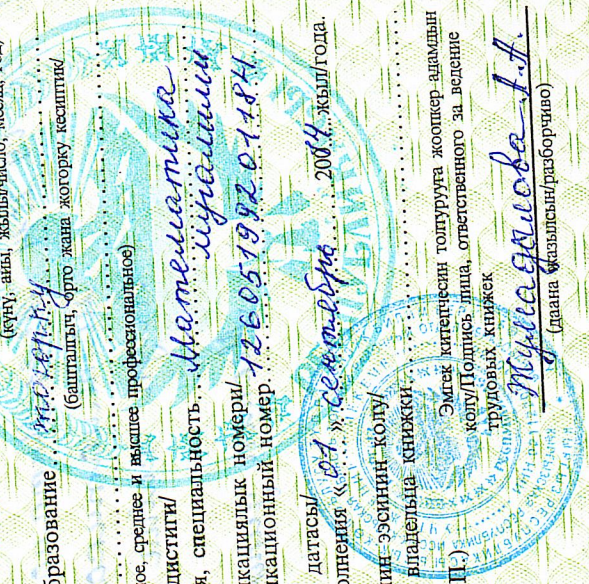 (күнү, айы, жылы/число, месяц, год)
бразование жогорку
(башталгыч, орто жана жогорку кесиптик/
ое, среднее и высшее профессиональное)
дистиги/
я, специальность Математика
мугалими
кациялык номери/
кационный номер 12605199201184
датасы/
олнения «01» сентябрь 2014 жыл/года.
ин ээсинин колу/
владельца книжки
Эмгек китепчесин толтурууга жоопкер адамдын
колу/Подпись лица, ответственного за ведение
трудовых книжек
Жумадылова А.А.
(даана жазылсын/разборчиво)
П.)